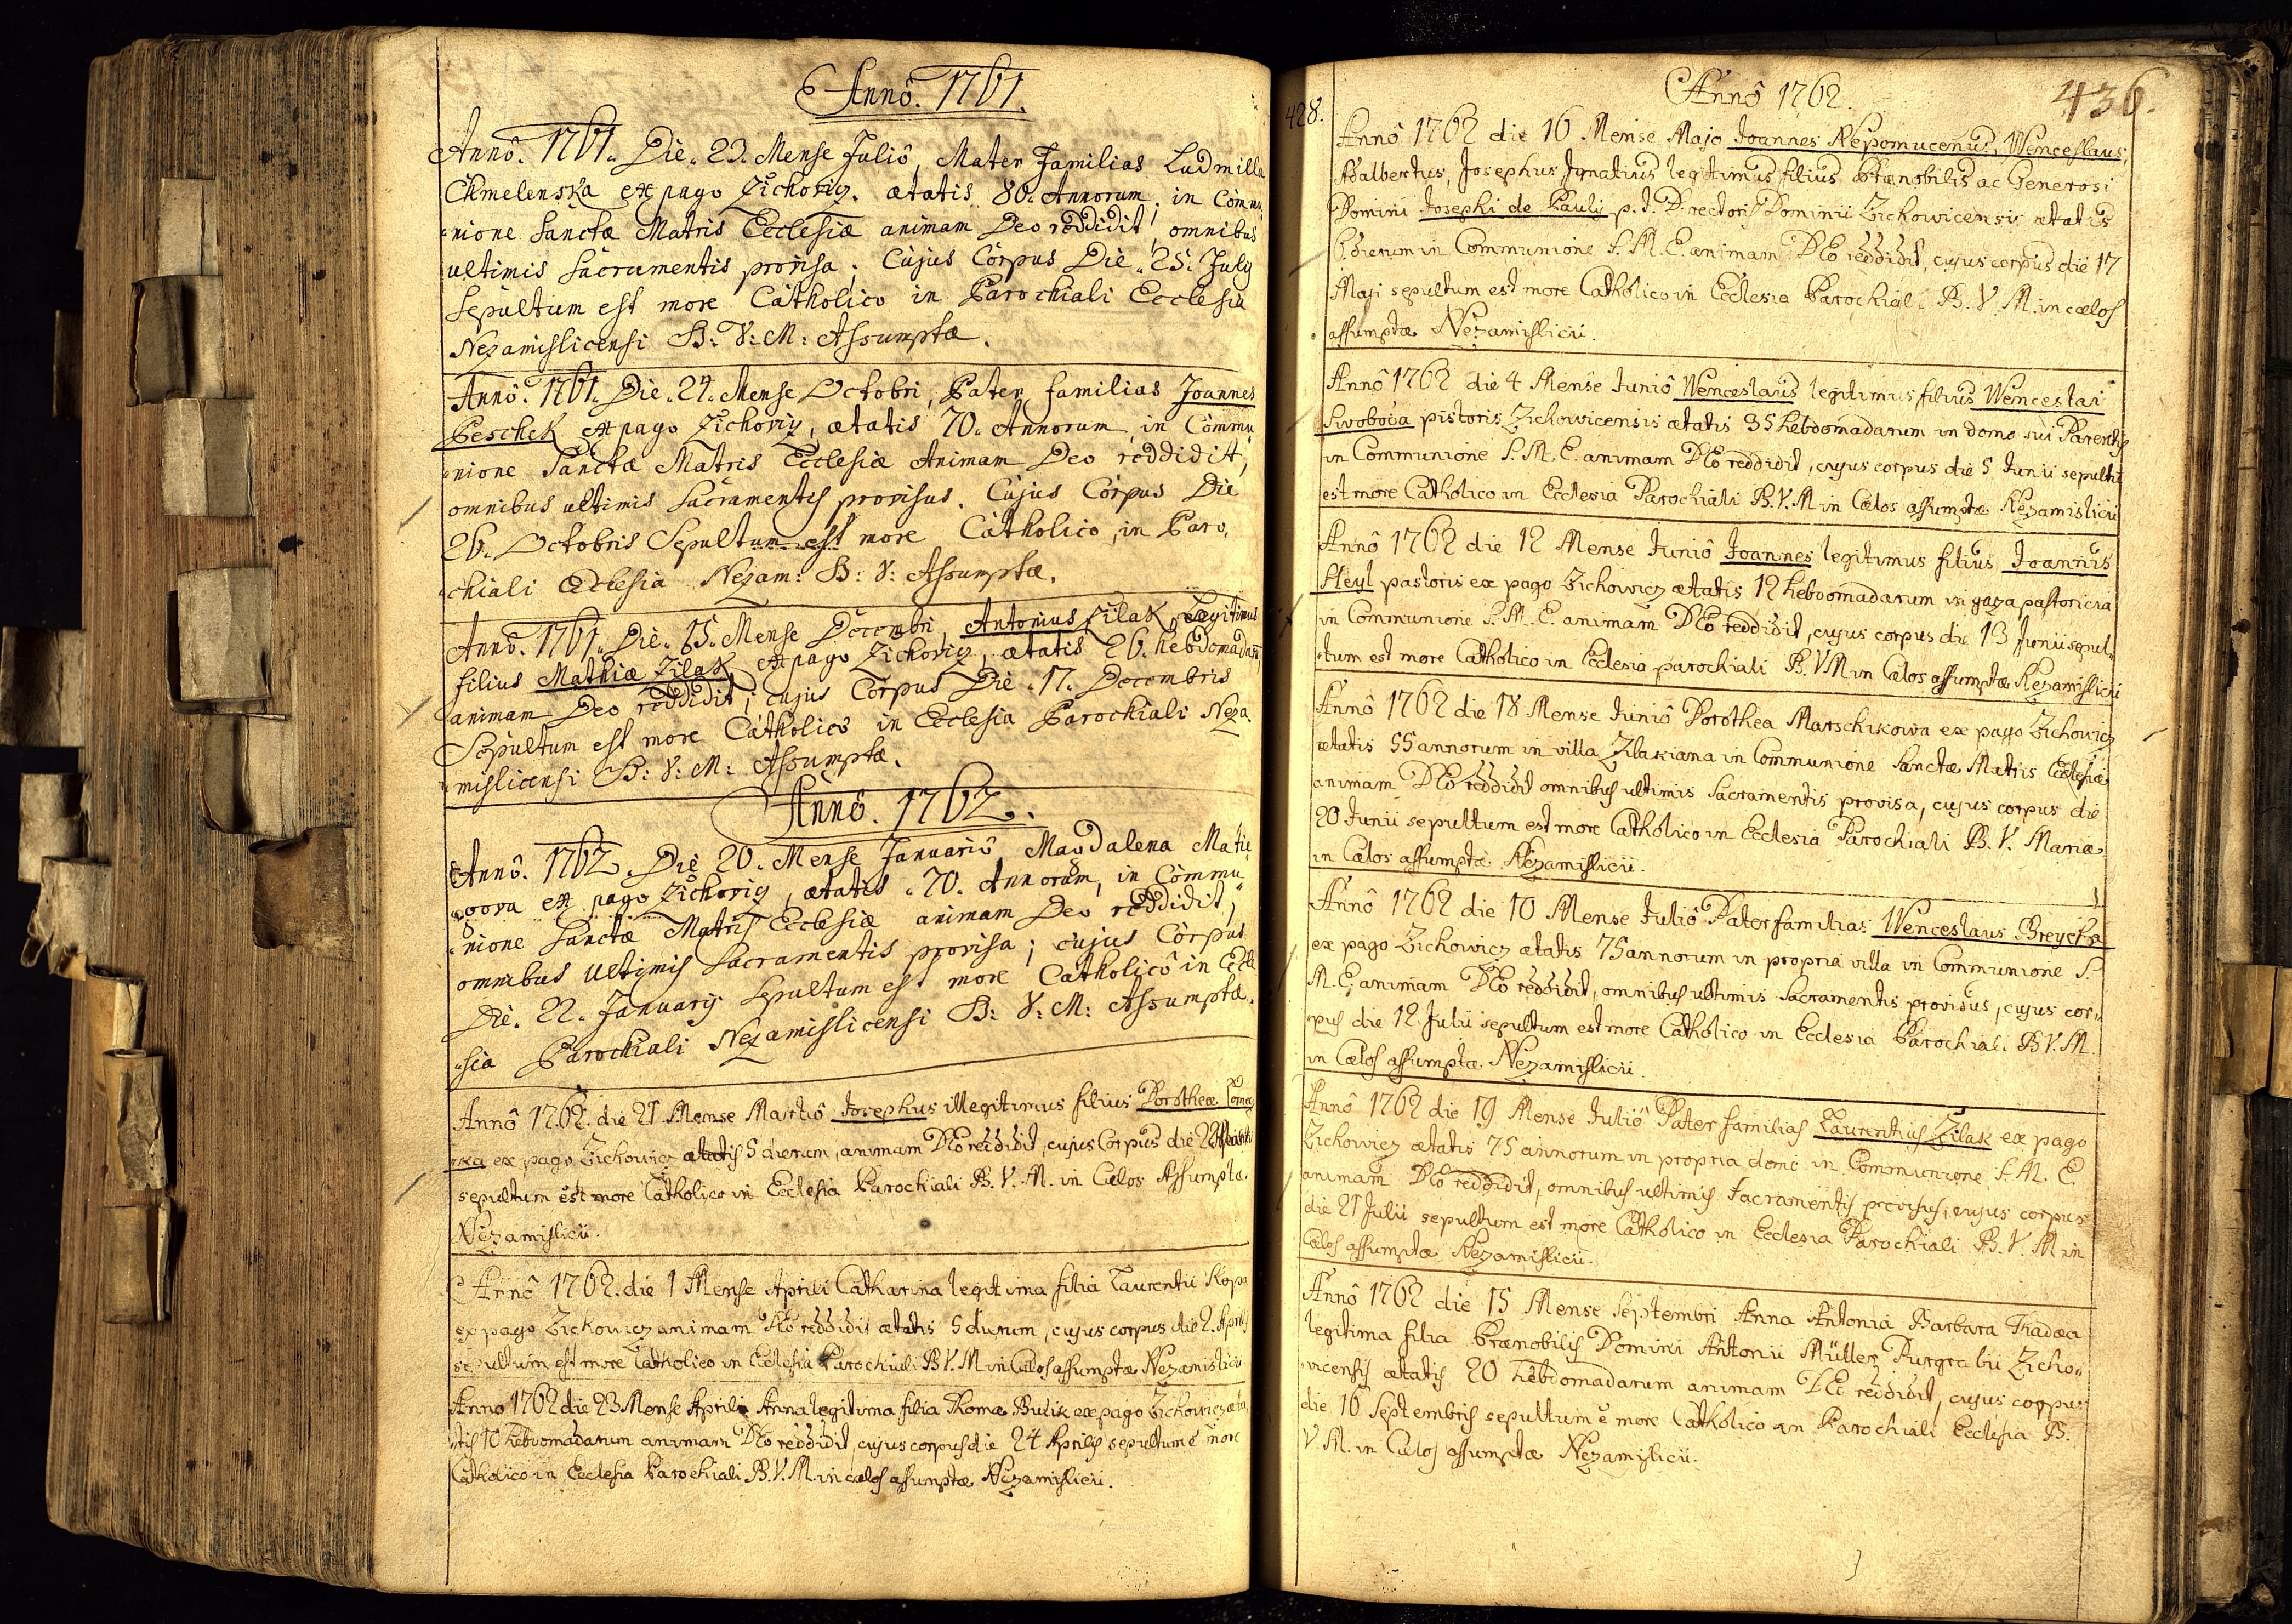 Annô. 1761.
Annô. 1761. Die. 23. Mense Juliô, Mater Familias Ludmilla
Chmelenska ex pago Zichoviz. ætatis 80. Annorum, in Commu
nione Sanctæ Matris Ecclesiæ animam Deo reddidit, omnibus
ultimis Sacramentis provisa; Cujus Corpus Die. 25. July
Sepultum est more Catholico in Parochiali Ecclesia
Nezamislicensi B: V: M: Assumptæ.
Annô. 1761. Die. 24. Mense Octobri, Pater familias Joannes
Peschek ex pago Zichoviz, ætatis 70. Annorum in Commu
nione Sanctæ Matris Ecclesiæ Animam Deo reddidit,
omnibus ultimis Sacramentis provisus. Cujus Corpus Die
26. Octobris Sepultum est more Catholico, in Paro,
chiali Ecclesia Nezam: B: V: Assumptæ.
Annô. 1761. Die. 15. Mense Decembri, Antonius Zilak, Legitimus
filius Mathiæ Zilak ex pago Zichoviz, ætatis 26. hebdomadarū,
animam Deo reddidit; cujus Corpus Die. 17. Decembris
Sepultum est more Catholico in Ecclesia Parochiali Neza.
mislicensi B: V: M: Assumptæ.
Annô. 1762.
Annô. 1762. Die 20. Mense Januariô, Magdalena Matie
gova ex pago Zichoviz, ætatis 70. Annorum, in Commu
nione Sanctæ Matris Ecclesiæ animam Deo reddidit,
omnibus Ultimis Sacramentis provisa; cujus Corpus
Die. 22. Januarij Sepultum est more Catholicô in Eccle
sia Parochiali Nezamislicensi B: V: M: Assumptæ.
Annô 1762. die 21 Mense Martiô Josephus illegitimus filius Dorotheæ
ka ex pago Zichowicz ætatis 5 dierum, animam DEo reddidit, cujus Corpus die 22
sepultum est more Catholico in Ecclesia Parochiali B. V. M. in Cœlos Assumptæ
Nezamislicii.
Annô 1762. die 1 Mense Aprili Catharina legitima filia Laurentii Kopa
ex pago Zichowicz animam DEo reddidit ætatis 5 dierum, cujus corpus die 2. Aprilis
sepultum est more Catholico in Ecclesia Parochiali B V. M in Cœlos assumptæ Nezamislicii
Anno 1762 die 23 Mense Aprili Anna legitima filia Thomæ Bulik ex pago Zichowicz æta
tis 10 hebdomadarum animam DEo reddidit, cujus corpus die 24 Aprilis sepultum ē more
Catholico in Ecclesia Parochiali B. V. M in cœlos assumptæ Nezamislicii.
428.
Annô 1762.
436.
Annô 1762 die 16 Mense Majo Joannes Nepomucenus, Wenceslaus,
Adalbertus, Josephus Ignatius legitimus filius Prænobilis ac Generosi
Domini Josephi de Pauly p. t. Directoris Dominii Zichowicensis ætatis
dierum in Communione S. M. E. animam DEo reddidit, cujus corpus die 17
Maji sepultum est more Catholico in Ecclesia Parochiali B. V. M. in cœlos
assumptæ Nezamislicii.
Annô 1762 die 4 Mense Juniô Wenceslaus legitimus filius Wenceslai
Swoboda pistoris Zichowicensis ætatis 35 hebdomadarum in domo sui Parentis
in Communione S. M. E. animam DEo reddidit, cujus corpus die 5 Junii sepultū
est more Catholico in Ecclesia Parochiali B. V. M in Cœlos assumptæ Nezamislicii
Annô 1762 die 12 Mense Juniô Joannes legitimus filius Joannis
Heyl pastoris ex pago Zichowicz ætatis 12 hebdomadarum in gaza pastoricia
in Communione S. M. E. animam DEo reddidit, cujus corpus die 13 Junii sepul-
tum est more Catholico in Ecclesia parochiali B. V M in Cœlos assumptæ Nezamislicii
Annô 1762 die 18 Mense Juniô Dorothea Marschikowa ex pago Zichowicz
ætatis 55 annorum in villa Zilakiana in Communione Sanctæ Matris Ecclesiæ
animam DEo reddidit omnibus ultimis Sacramentis provisa, cujus corpus die
20 Junii sepultum est more Catholico in Ecclesia Parochiali B. V. Mariæ
in Cœlos assumptæ Nezamislicii.
Annô 1762 die 10 Mense Juliô Paterfamilias Wenceslaus Breycha
ex pago Zichowicz ætatis 75 annorum in propria villa in Communione S.
M. E. animam DEo reddidit, omnibus ultimis Sacramentis provisus, cujus cor-
pus die 12 Julii sepultum est more Catholico in Ecclesia Parochiali B V. M.
in Cœlos assumptæ Nezamislicii.
Annô 1762 die 19 Mense Juliô Pater familias Laurentius Zilak ex pago
Zichowicz ætatis 75 annorum in propria domo in Communione S. M. E.
animam DEo reddidit, omnibus ultimis Sacramentis provisus, cujus corpus
die 21 Julii sepultum est more Catholico in Ecclesia Parochiali B. V. M in
Cœlos assumptæ Nezamislicii.
Annô 1762 die 15 Mense Septembri Anna Antonia Barbara Thadæa
legitima filia Prænobilis Domini Antonii Müller Burgrabii Zicho-
vicensis ætatis 20 hebdomadarum animam DEo reddidit, cujus corpus
die 16 Septembris sepultum ē more Catholico in Parochiali Ecclesia B.
V. M. in Cœlos assumptæ Nezamislicii.